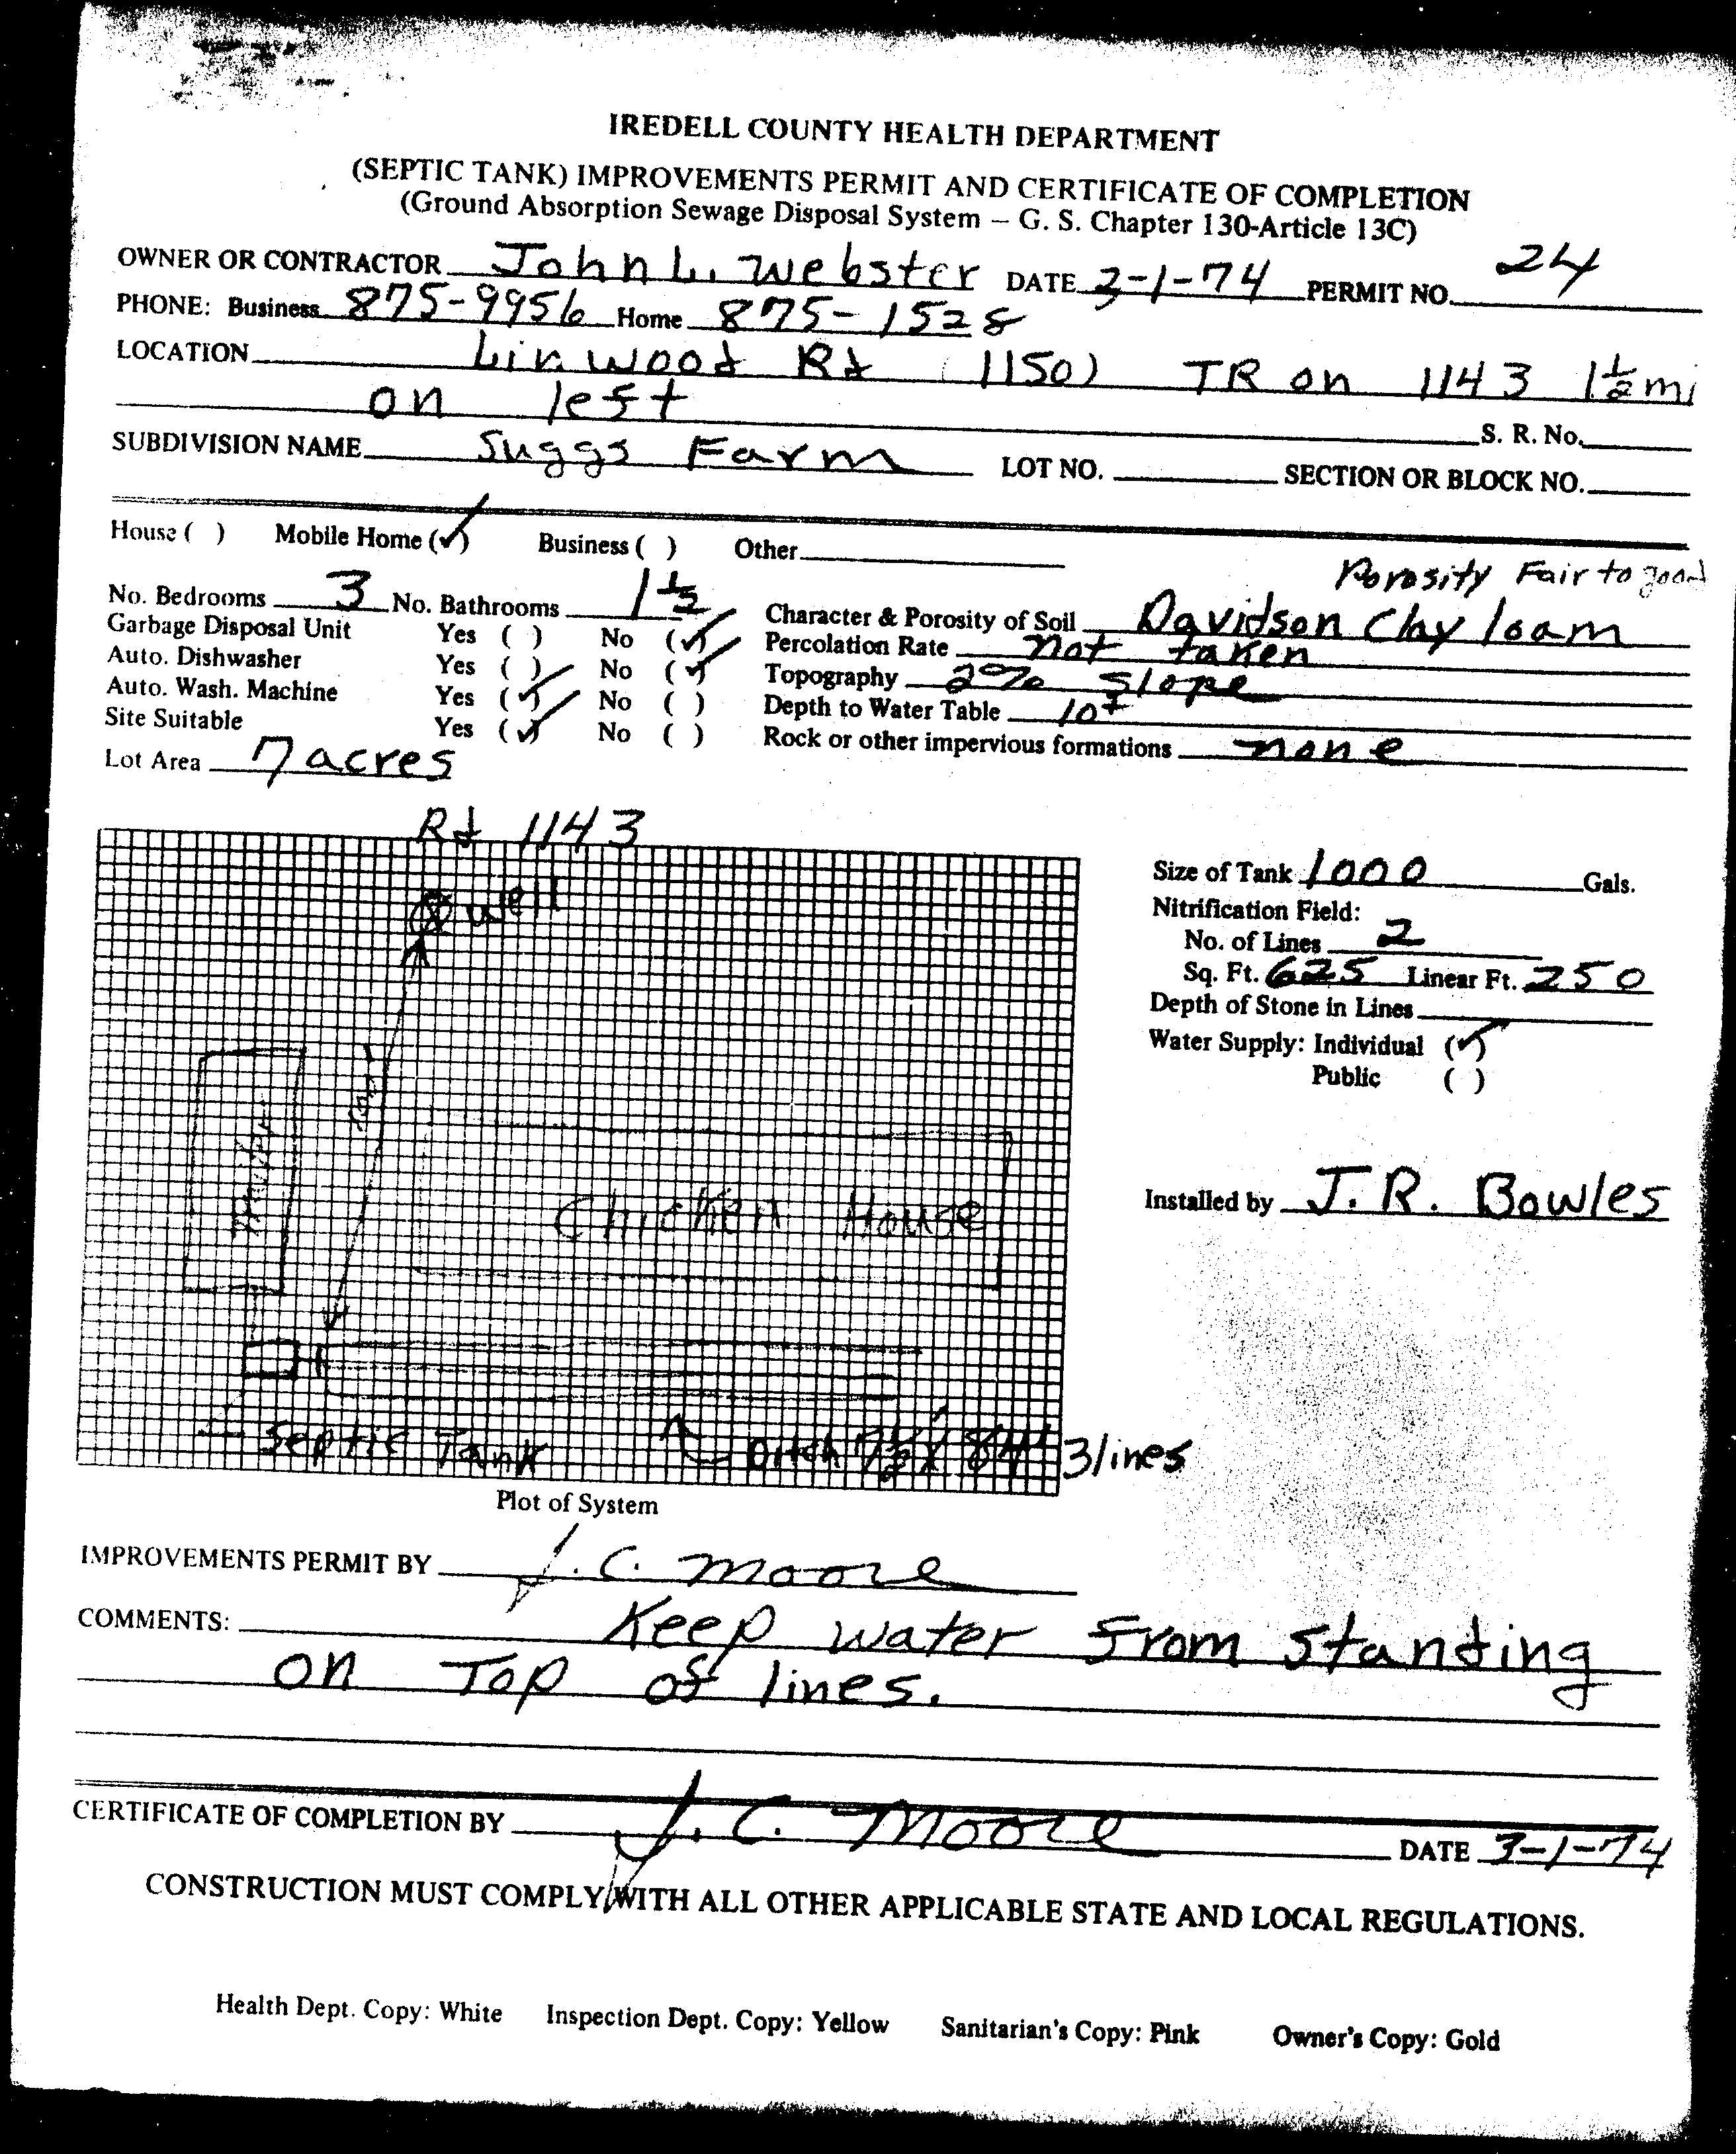 IREDELL COUNTY HEALTH DEPARTMENT
(SEPTIC TANK) IMPROVEMENTS PERMIT AND CERTIFICATE OF COMPLETION
(Ground Absorption Sewage Disposal System – G. S. Chapter 130-Article 13C)
OWNER OR CONTRACTOR John L. Webster DATE 3-1-74 PERMIT NO. 24
PHONE: Business 875-9956 Home 875-1528
LOCATION Linwood Rd (1150) TR on 1143 1½ mi
on left S. R. No.
SUBDIVISION NAME Suggs Farm LOT NO. SECTION OR BLOCK NO.
House ( ) Mobile Home (✓) Business ( ) Other
Porosity Fair to good
No. Bedrooms 3 No. Bathrooms 1½ Character & Porosity of Soil Davidson Clay loam
Garbage Disposal Unit Yes ( ) No (✓) Percolation Rate not taken
Auto. Dishwasher Yes ( ) No (✓) Topography 2% Slope
Auto. Wash. Machine Yes (✓) No ( ) Depth to Water Table 10+
Site Suitable Yes (✓) No ( ) Rock or other impervious formations none
Lot Area 7 acres
Rd 1143
well
Size of Tank 1000 Gals.
Nitrification Field:
No. of Lines 2
Sq. Ft. 625 Linear Ft. 250
Depth of Stone in Lines
Water Supply: Individual (✓)
Public ( )
Chicken House
Installed by J. R. Bowles
Septic Tank Ditch 3 lines
Plot of System
IMPROVEMENTS PERMIT BY J. C. Moore
COMMENTS: Keep water from standing
on Top of lines.
CERTIFICATE OF COMPLETION BY J. C. Moore DATE 3-1-74
CONSTRUCTION MUST COMPLY WITH ALL OTHER APPLICABLE STATE AND LOCAL REGULATIONS.
Health Dept. Copy: White Inspection Dept. Copy: Yellow Sanitarian's Copy: Pink Owner's Copy: Gold